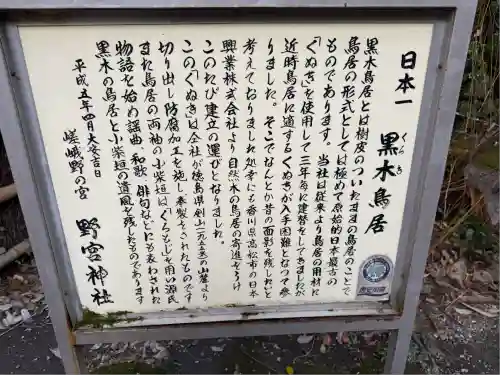 日本一 黒木鳥居
くろき
黒木鳥居とは樹皮のついたままの鳥居のことで
鳥居の形式としては極めて原始的日本最古の
ものであります。当社は従来より鳥居の用材に
「くぬぎ」を使用して三年毎に建替をしてきましたが
近時鳥居に適するくぬぎが入手困難となって参
りました。そこでなんとか昔の面影を残したいと
考えておりました処幸にも香川県高松市の日本
興業株式会社より自然木の鳥居の寄進をうけ
このたび建立の運びとなりました。
この「くぬぎ」は仝社が徳島県剣山(一九五五米)の山麓より
切り出し防腐加工を施し奉製されたものです
また鳥居の両袖の小柴垣は「くろもじ」を用い源氏
物語を始め謡曲 和歌 俳句などにも表わされた
黒木の鳥居と小柴垣の遺風を残したものであります
平成五年四月大安吉日
嵯峨野の宮 野宮神社